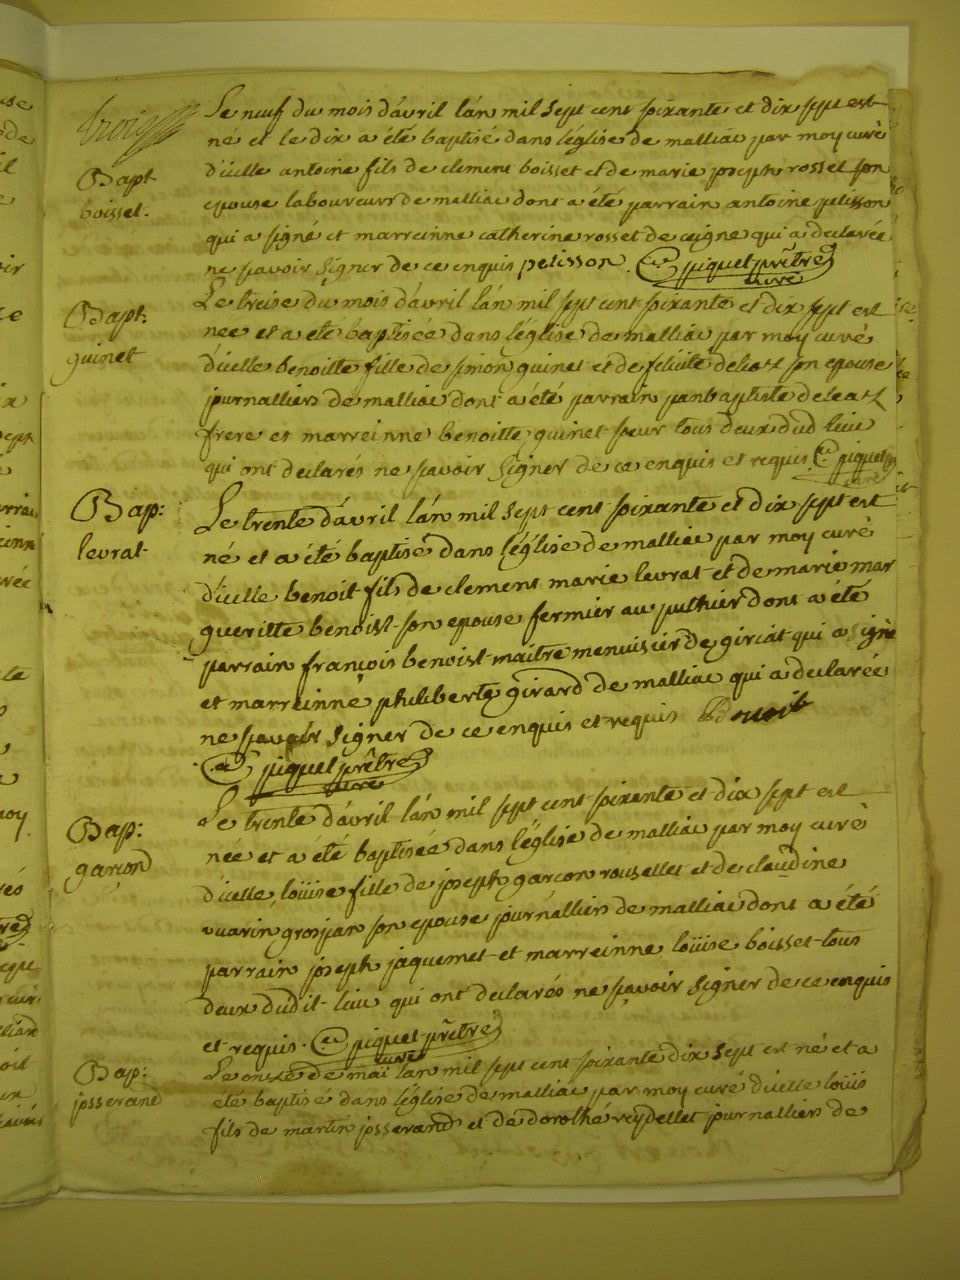 trois
Bapt
boisset.
Le neuf du mois d'avril l'an mil sept cent soixante et dix sept est
né et le dix a été baptisé dans l'église de malliac par moy curé
d'icelle antoine fils de clement boisset et de marie joseph rosset son
epouse laboureurs de malliac dont a été parrain antoine pelisson
qui a signé et marreinne catherine rosset de ceigne qui a declarée
ne savoir signer de ce enquis pelisson. piquet prêtre
curé
Bapt:
guinet
Le treise du mois d'avril l'an mil sept cent soixante et dix sept est
née et a été baptisée dans l'église de malliac par moy curé
d'icelle benoitte fille de simon guinet et de felicité deleaz son epouse
journalliers de malliac dont a été parrain janbaptiste deleaz
frere et marreinne benoitte guinet sœur tous deux dud lieu
qui ont declarés ne savoir signer de ce enquis et requis piquet
curé
Bap:
levrat
Le trente d'avril l'an mil sept cent soixante et dix sept est
né et a été baptisé dans l'église de malliac par moy curé
d'icelle benoit fils de clement marie levrat et de marie mar
gueritte benoist son epouse fermier au puthier dont a été
parrain françois benoist maitre menuisier de girciat qui a signé
et marreinne philiberte girard de malliac qui a declarée
ne savoir signer de ce enquis et requis Benoit
piquet prêtre
curé
Bap:
garcond
Le trente d'avril l'an mil sept cent soixante et dix sept est
née et a été baptisée dans l'église de malliac par moy curé
d'icelle loüise fille de joseph garcon rousellet et de claudine
vuarin grosjan son epouse journalliers de malliac dont a été
parrain joseph jaquemet et marreinne loüise boisset tous
deux dudit lieu qui ont declarés ne savoir signer de ce enquis
et requis. piquet prêtre
curé
Bap:
josserand
Le onse de maï l'an mil sept cent soixante dix sept est né et a
eté baptise dans l'église de malliac par moy curé d'icelle loüis
fils de martin josserand et de dorothé reydellet journalliers de